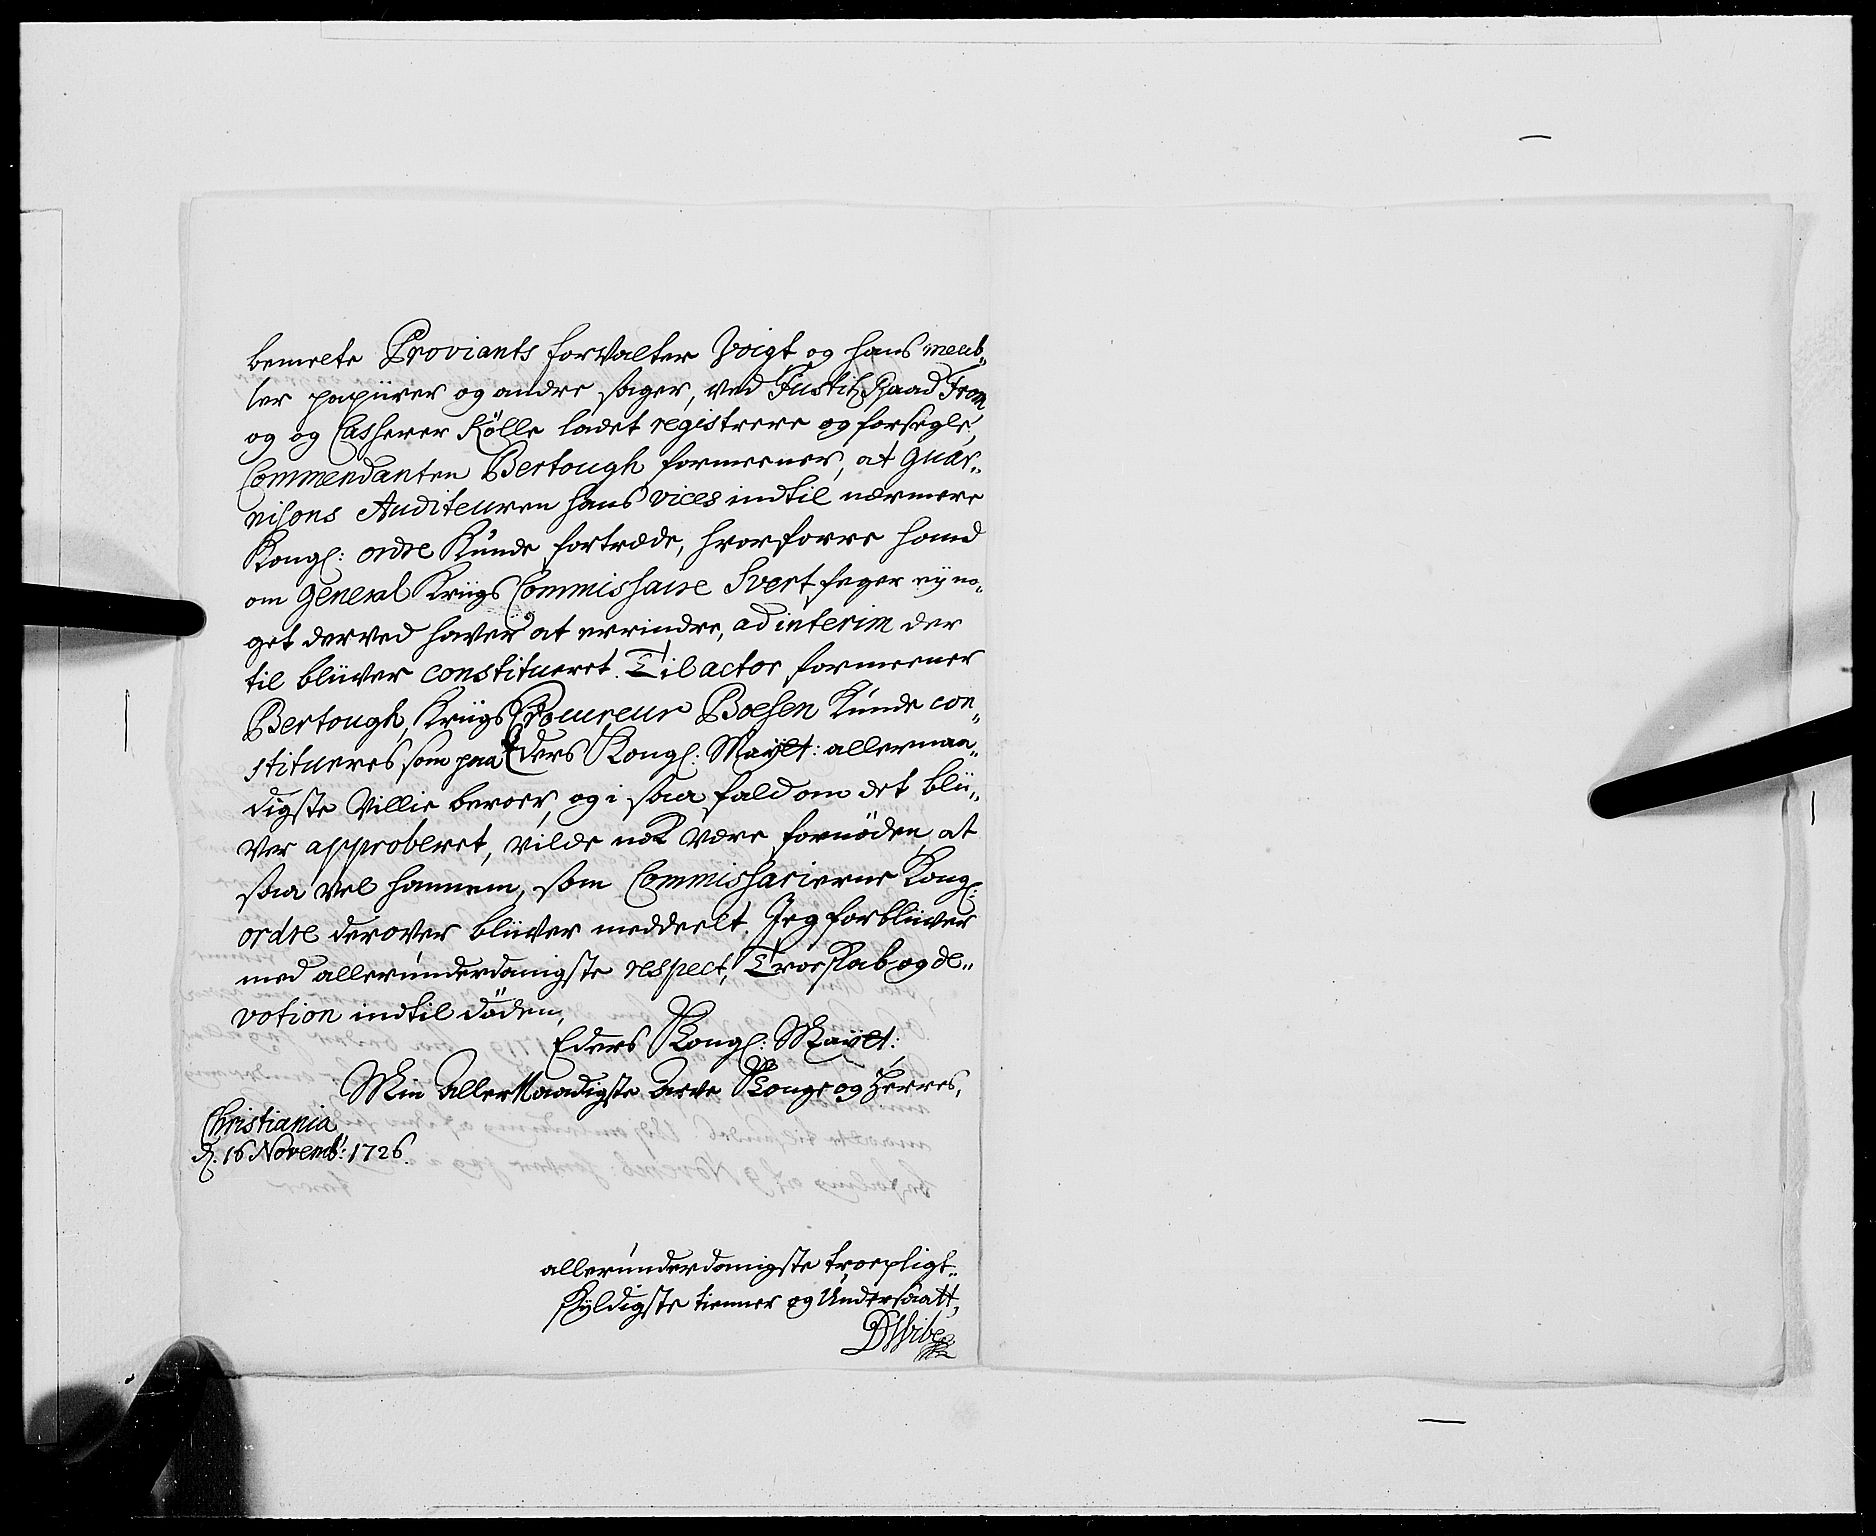 bemelte Proviants forValter Voigt og hans meub„
ler papiirer og andre sager, ved Justitz Raad From
og og Casserer Kølle ladet registrere og forsegle,
Commendanten Bertough formeener, at guar„
nisons Auditeuren hans vices indtil nærmere
Kongl: ordre Kunde fortræde, hvorforre hand
om General Kriigs Commissaire Svertfeger ej no„
get derved haver at errindre, ad interim der
til bliiver constitueret. Til actor formeener
Bertough, Kriigs Procureur Boesen Kunde con„
stitueres som paa Eders Kongl: Mayst: allernaa„
digste Villie beroer, og i saa fald om det blii„
ver approberet, vilde nok være fornøden, at
saa vel hannem, som Commissarierne Kongl:
ordre derover bliiver meddeelt. Jeg forbliiver
med allerunderdanigste respect, Troeskab og de„
votion indtil døden,
Eders Kongl: Mayst:
Min AllerNaadigste Arve Konge og Herres,
Christiania
d. 16 Novemb: 1726.
allerunderdanigste troepligt„
skyldigste tienner og Undersaatt,
DWibe